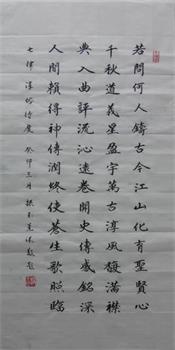 若問何人鑄古今江山化育聖賢心
千秋道義星盈宇萬古淳風馥滿襟
典入曲評流沁遠卷開史傳感銘深
人間賴得神傳潤終使蒼生歌照臨
七律淳俗待度 癸卯三月